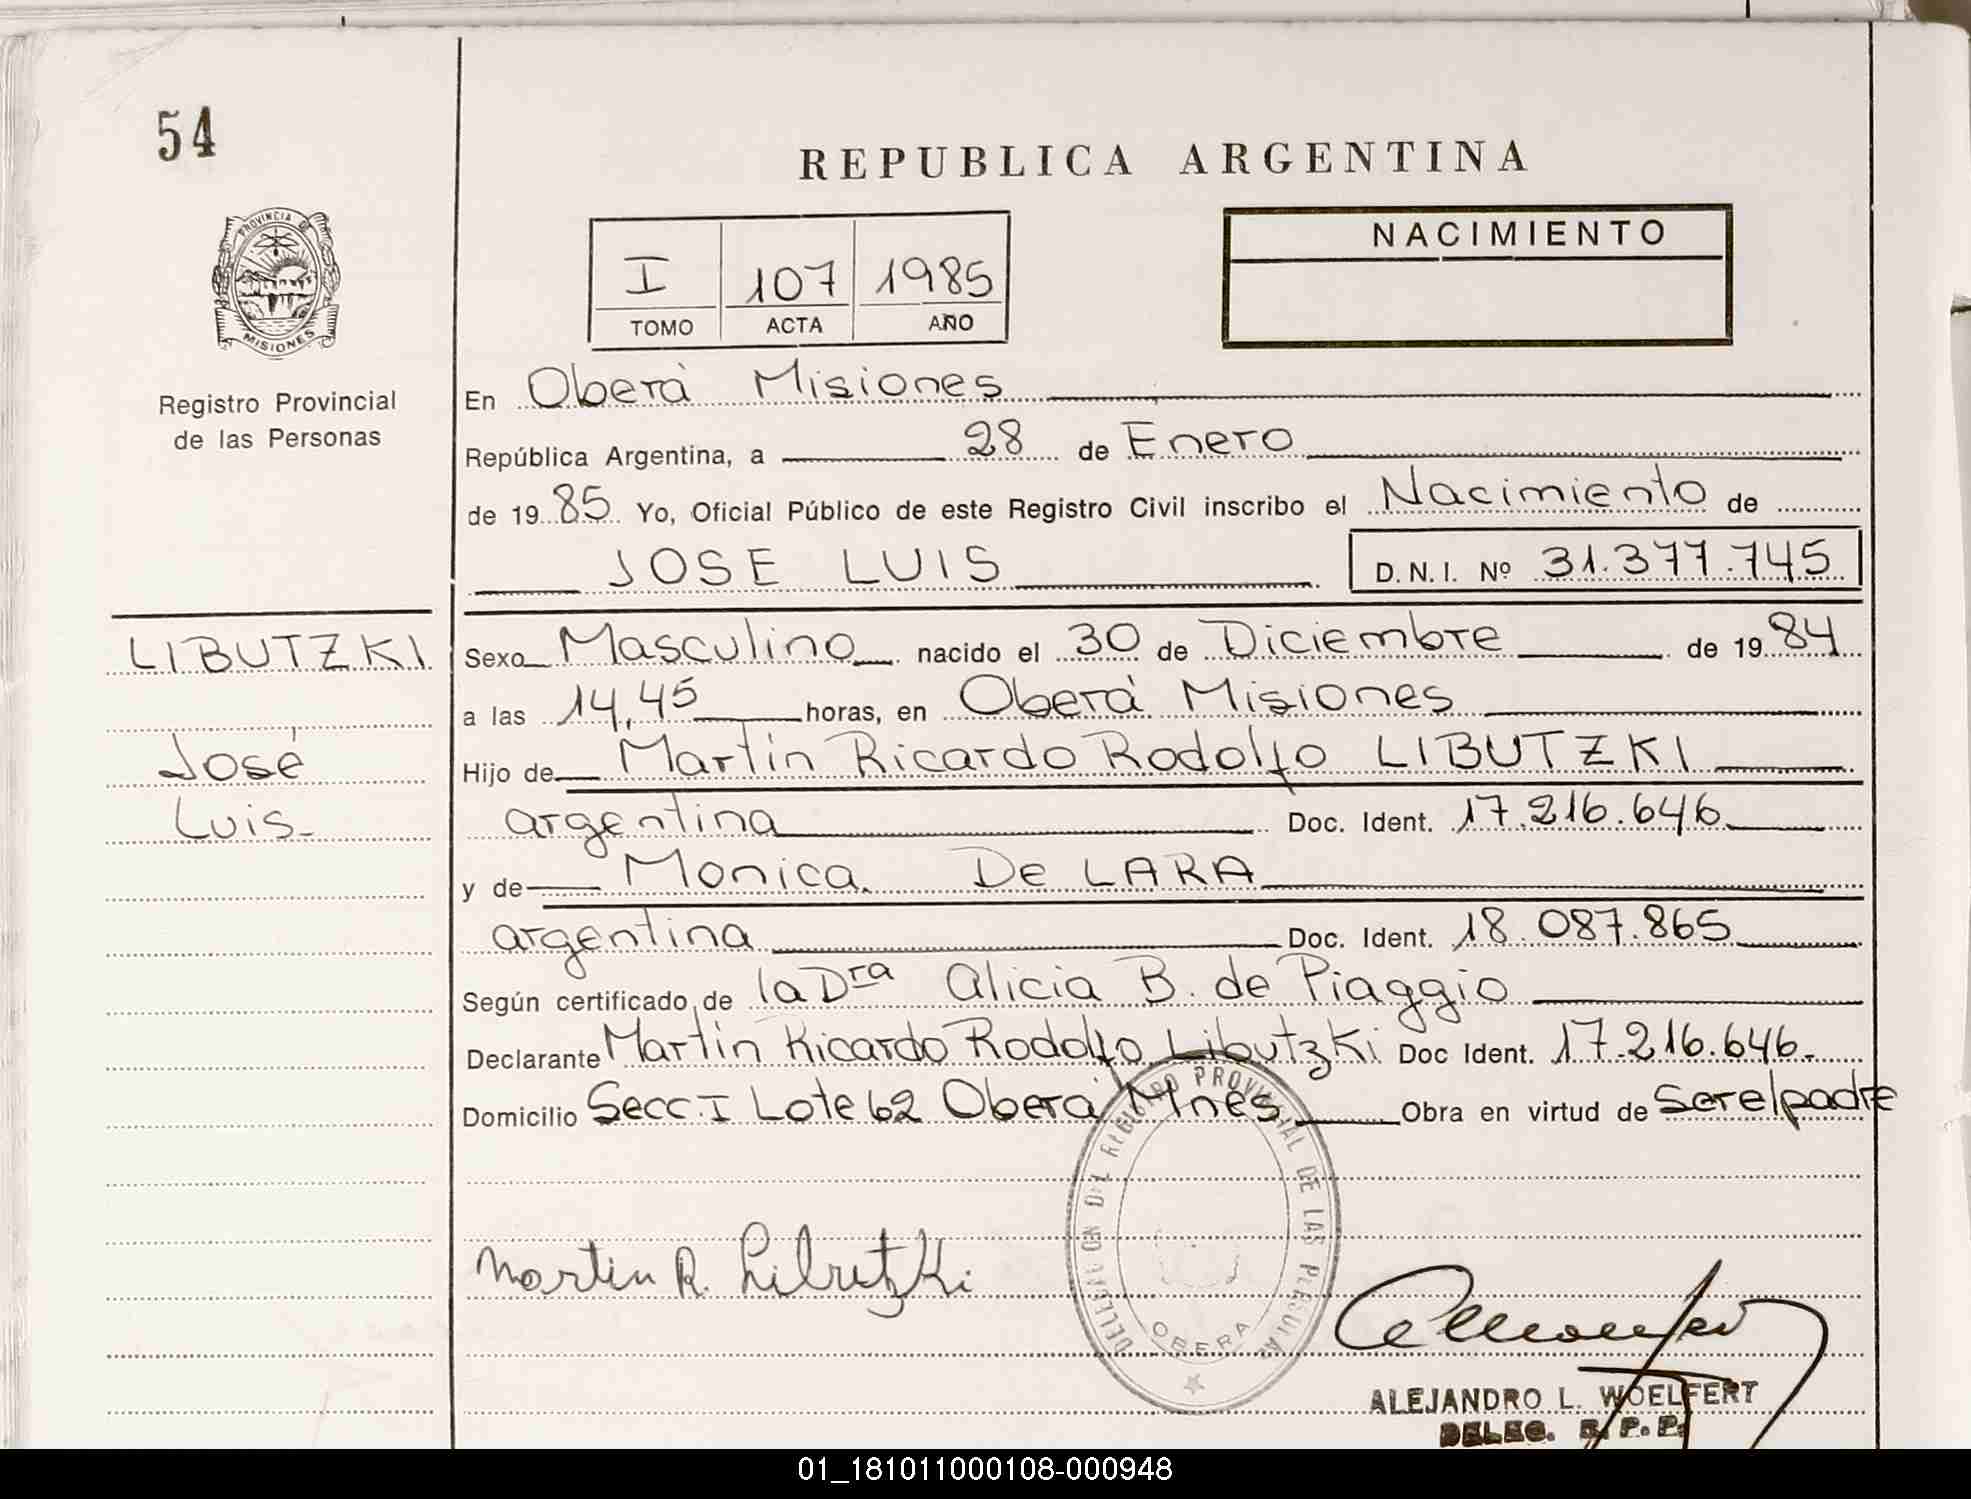 54
REPUBLICA ARGENTINA
PROVINCIA DE
MISIONES
I 107 1985
TOMO ACTA AÑO
NACIMIENTO
Registro Provincial
de las Personas
En Oberá Misiones
República Argentina, a 28 de Enero
de 1985 Yo, Oficial Público de este Registro Civil inscribo el Nacimiento de
JOSE LUIS D.N.I. Nº 31.377.745
LIBUTZKI
José
Luis
Sexo Masculino nacido el 30 de Diciembre de 1984
a las 14,45 horas, en Oberá Misiones
Hijo de Martin Ricardo Rodolfo LIBUTZKI
argentina Doc. Ident. 17.216.646
y de Monica De LARA
argentina Doc. Ident. 18.087.865
Según certificado de la Dra Alicia B. de Piaggio
Declarante Martin Ricardo Rodolfo Libutzki Doc Ident. 17.216.646.
Domicilio Secc. I Lote 62 Oberá Mnes Obra en virtud de Ser el padre
DELEGACION DEL REGISTRO PROVINCIAL DE LAS PERSONAS
OBERA
Martin R. Libutzki
ALEJANDRO L. WOELFERT
DELEG. R. P. P.
01_181011000108-000948